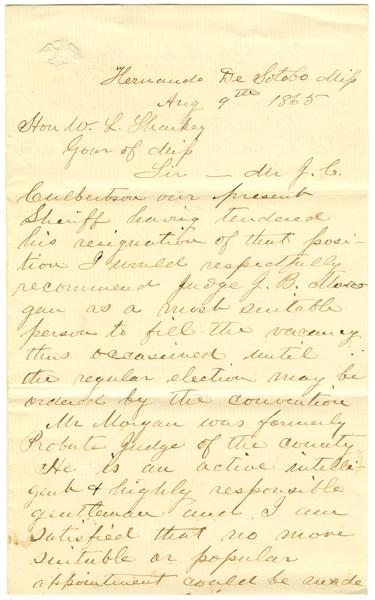 Hernando De Soto Co Miss
Aug 9th 1865
Hon W. L. Sharkey
Govr of Miss
Sir — Mr J. C.
Culbertson our present
Sheriff having tendered
his resignation of that posi-
tion I would respectfully
recommend Judge J. B. Mor
gan as a most suitable
person to fill the vacancy
thus occasioned until
the regular election may be
ordered by the convention
Mr Morgan was formerly
Probate Judge of the county
He is an active intelli-
gent & highly responsible
gentleman and I am
satisfied that no more
suitable or popular
appointment could be made